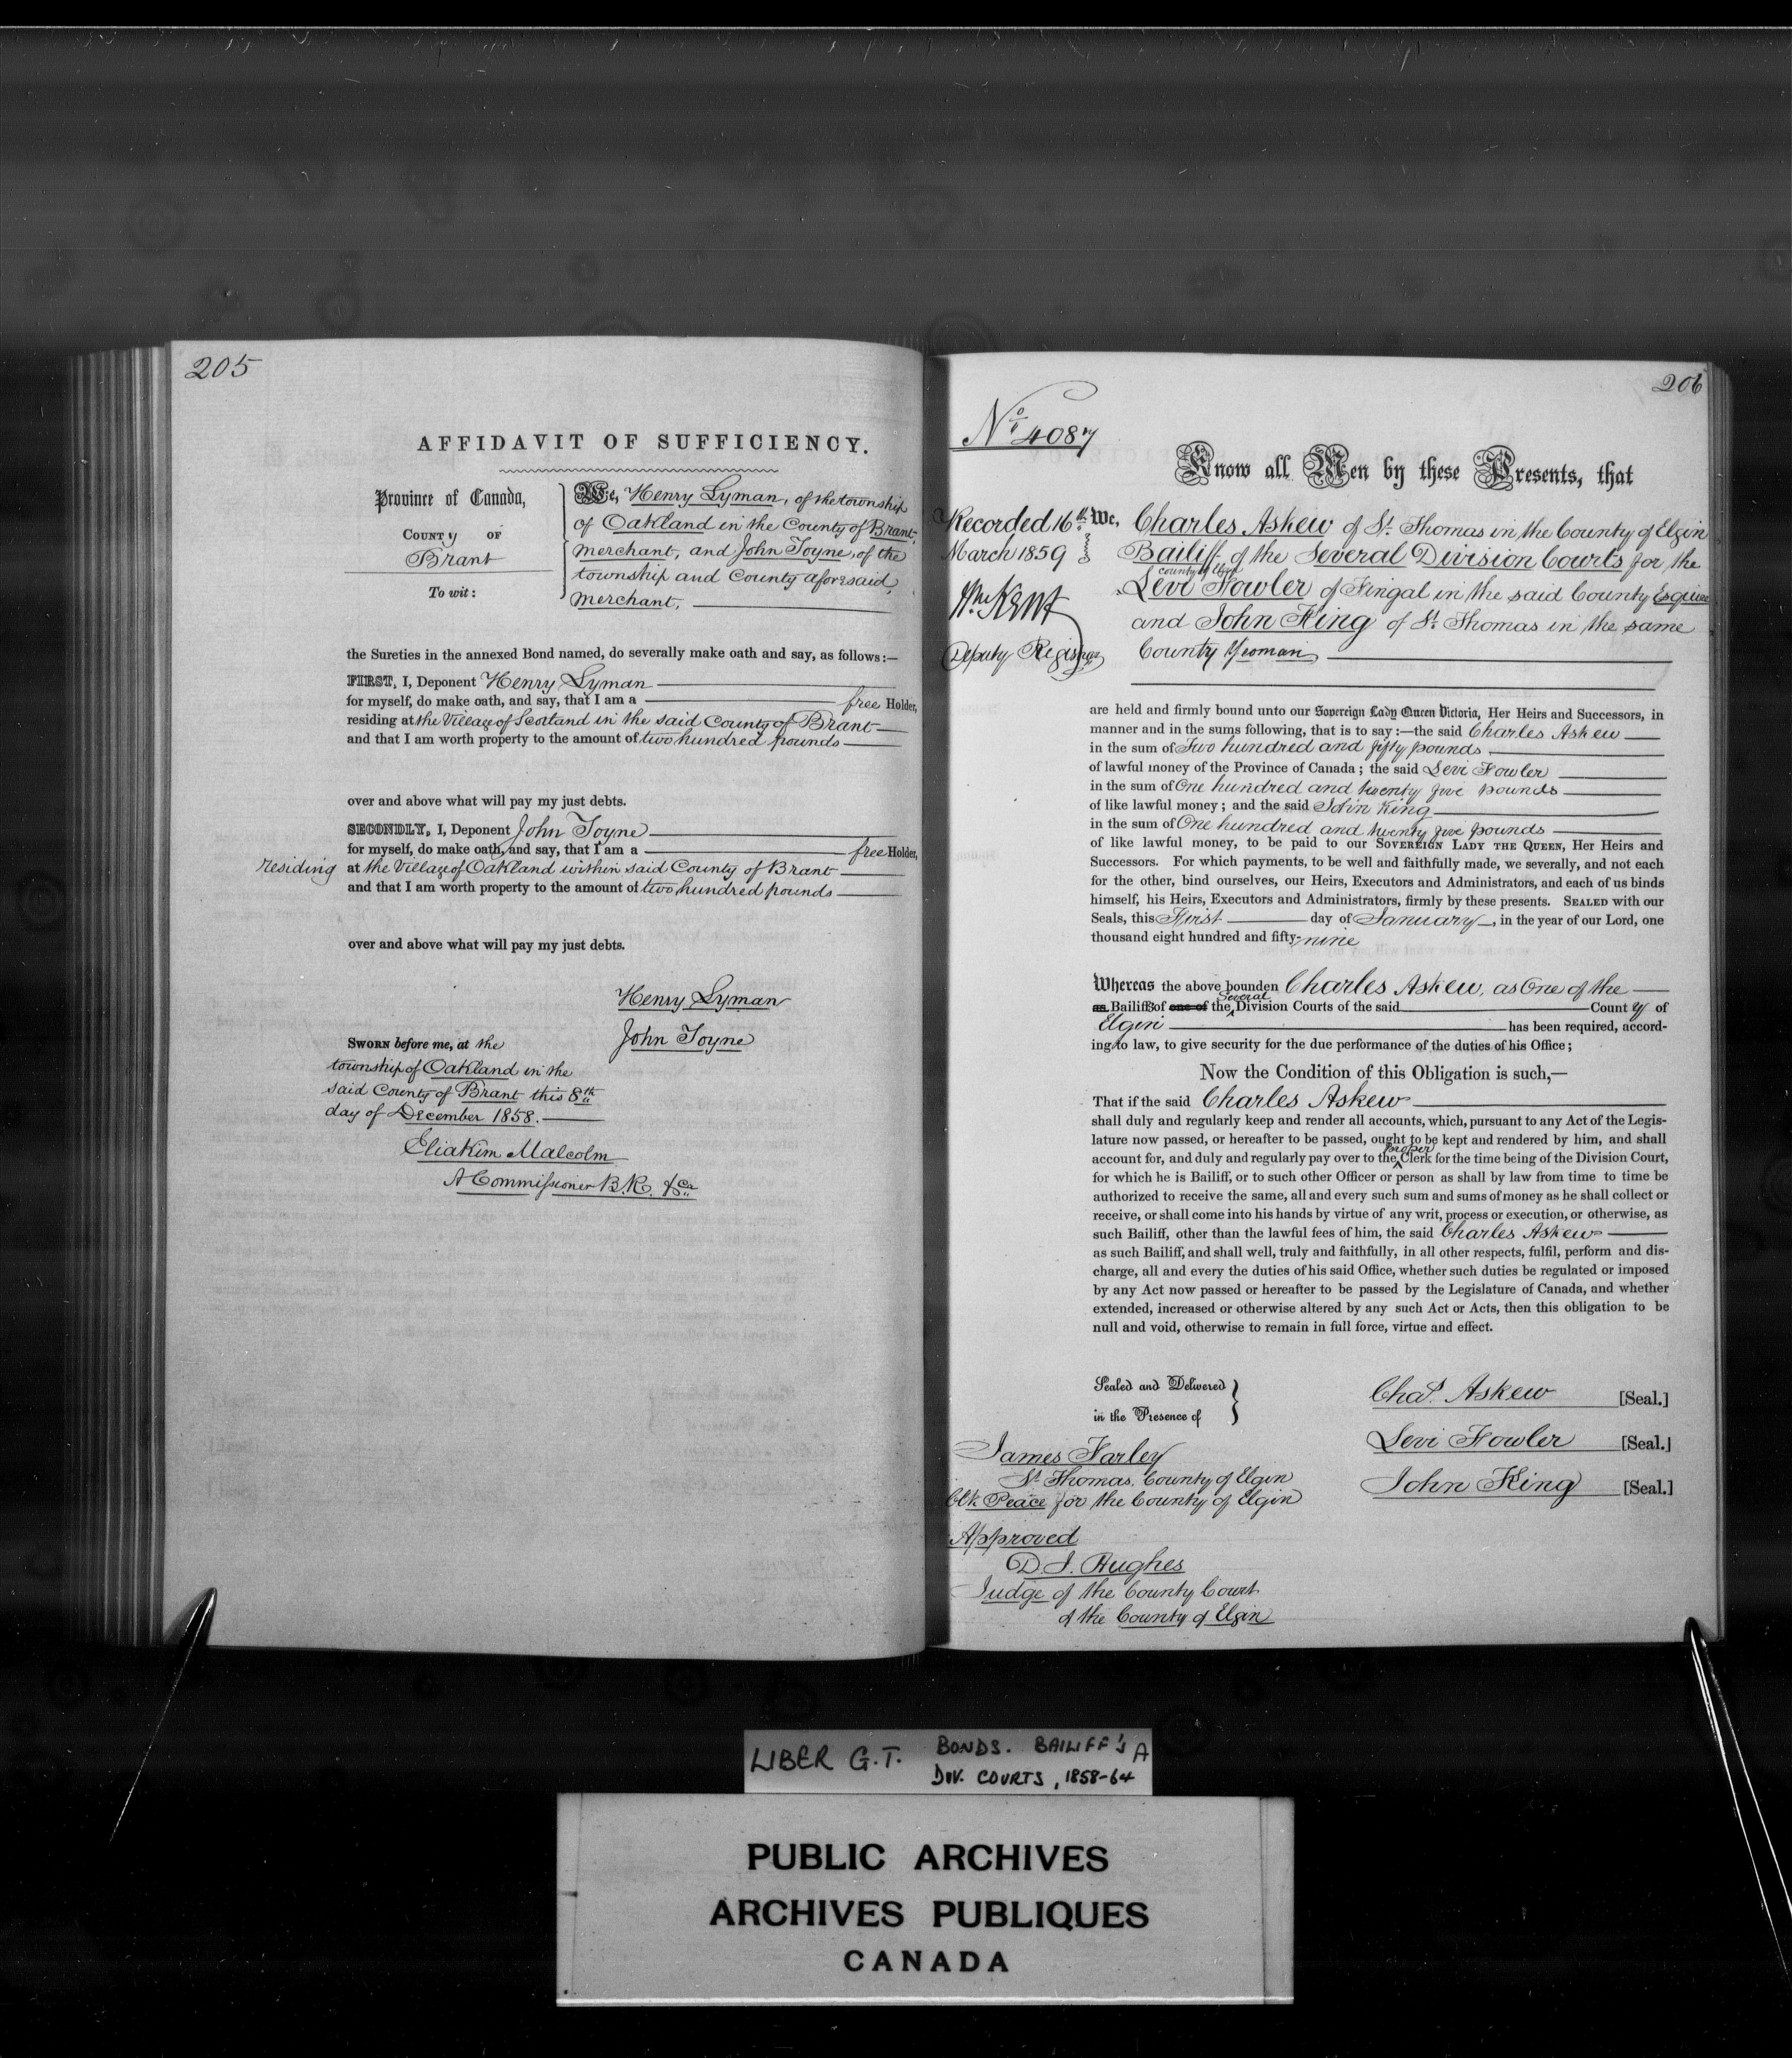 205
AFFIDAVIT OF SUFFICIENCY.
Province of Canada,
COUNTY OF
Brant
To wit:
We, Henry Lyman, of the township
of Oakland in the County of Brant,
merchant, and John Toyne, of the
township and County aforesaid,
merchant,
the Sureties in the annexed Bond named, do severally make oath and say, as follows:—
FIRST, I, Deponent Henry Lyman
for myself, do make oath, and say, that I am a free Holder,
residing at the Village of Scotland in the said County of Brant
and that I am worth property to the amount of two hundred pounds
over and above what will pay my just debts.
SECONDLY, I, Deponent John Toyne
for myself, do make oath, and say, that I am a free Holder,
residing at the Village of Oakland within said County of Brant
and that I am worth property to the amount of two hundred pounds
over and above what will pay my just debts.
Henry Lyman
John Toyne
SWORN before me, at the
township of Oakland in the
said County of Brant this 8th
day of December 1858.
Eliakim Malcolm
A Commissioner B.R. &ca
206
No 4087
Recorded 16th
March 1859
Wm Kent
Deputy Registrar
Know all Men by these Presents, that
We, Charles Askew of St. Thomas in the County of Elgin
Bailiff of the Several Division Courts for the
county of Elgin
Levi Fowler of Fingal in the said County Esquire
and John King of St. Thomas in the same
County Yeoman
are held and firmly bound unto our Sovereign Lady Queen Victoria, Her Heirs and Successors, in
manner and in the sums following, that is to say:—the said Charles Askew
in the sum of Two hundred and fifty pounds
of lawful money of the Province of Canada; the said Levi Fowler
in the sum of One hundred and twenty five pounds
of like lawful money; and the said John King
in the sum of One hundred and twenty five pounds
of like lawful money, to be paid to our SOVEREIGN LADY THE QUEEN, Her Heirs and
Successors. For which payments, to be well and faithfully made, we severally, and not each
for the other, bind ourselves, our Heirs, Executors and Administrators, and each of us binds
himself, his Heirs, Executors and Administrators, firmly by these presents. SEALED with our
Seals, this First day of January, in the year of our Lord, one
thousand eight hundred and fifty-nine
Whereas the above bounden Charles Askew, as One of the
as Bailiffs of one of the Several Division Courts of the said County of
Elgin has been required, accord-
ing to law, to give security for the due performance of the duties of his Office;
Now the Condition of this Obligation is such,—
That if the said Charles Askew
shall duly and regularly keep and render all accounts, which, pursuant to any Act of the Legis-
lature now passed, or hereafter to be passed, ought to be kept and rendered by him, and shall
account for, and duly and regularly pay over to the proper Clerk for the time being of the Division Court,
for which he is Bailiff, or to such other Officer or person as shall by law from time to time be
authorized to receive the same, all and every such sum and sums of money as he shall collect or
receive, or shall come into his hands by virtue of any writ, process or execution, or otherwise, as
such Bailiff, other than the lawful fees of him, the said Charles Askew
as such Bailiff, and shall well, truly and faithfully, in all other respects, fulfil, perform and dis-
charge, all and every the duties of his said Office, whether such duties be regulated or imposed
by any Act now passed or hereafter to be passed by the Legislature of Canada, and whether
extended, increased or otherwise altered by any such Act or Acts, then this obligation to be
null and void, otherwise to remain in full force, virtue and effect.
Sealed and Delivered
in the Presence of
James Farley
St. Thomas, County of Elgin
Clk Peace for the County of Elgin
Chas. Askew [Seal.]
Levi Fowler [Seal.]
John King [Seal.]
Approved
D. J. Hughes
Judge of the County Court
of the County of Elgin
LIBER G.T. BONDS. BAILIFF'S A
DIV. COURTS, 1858-64
PUBLIC ARCHIVES
ARCHIVES PUBLIQUES
CANADA